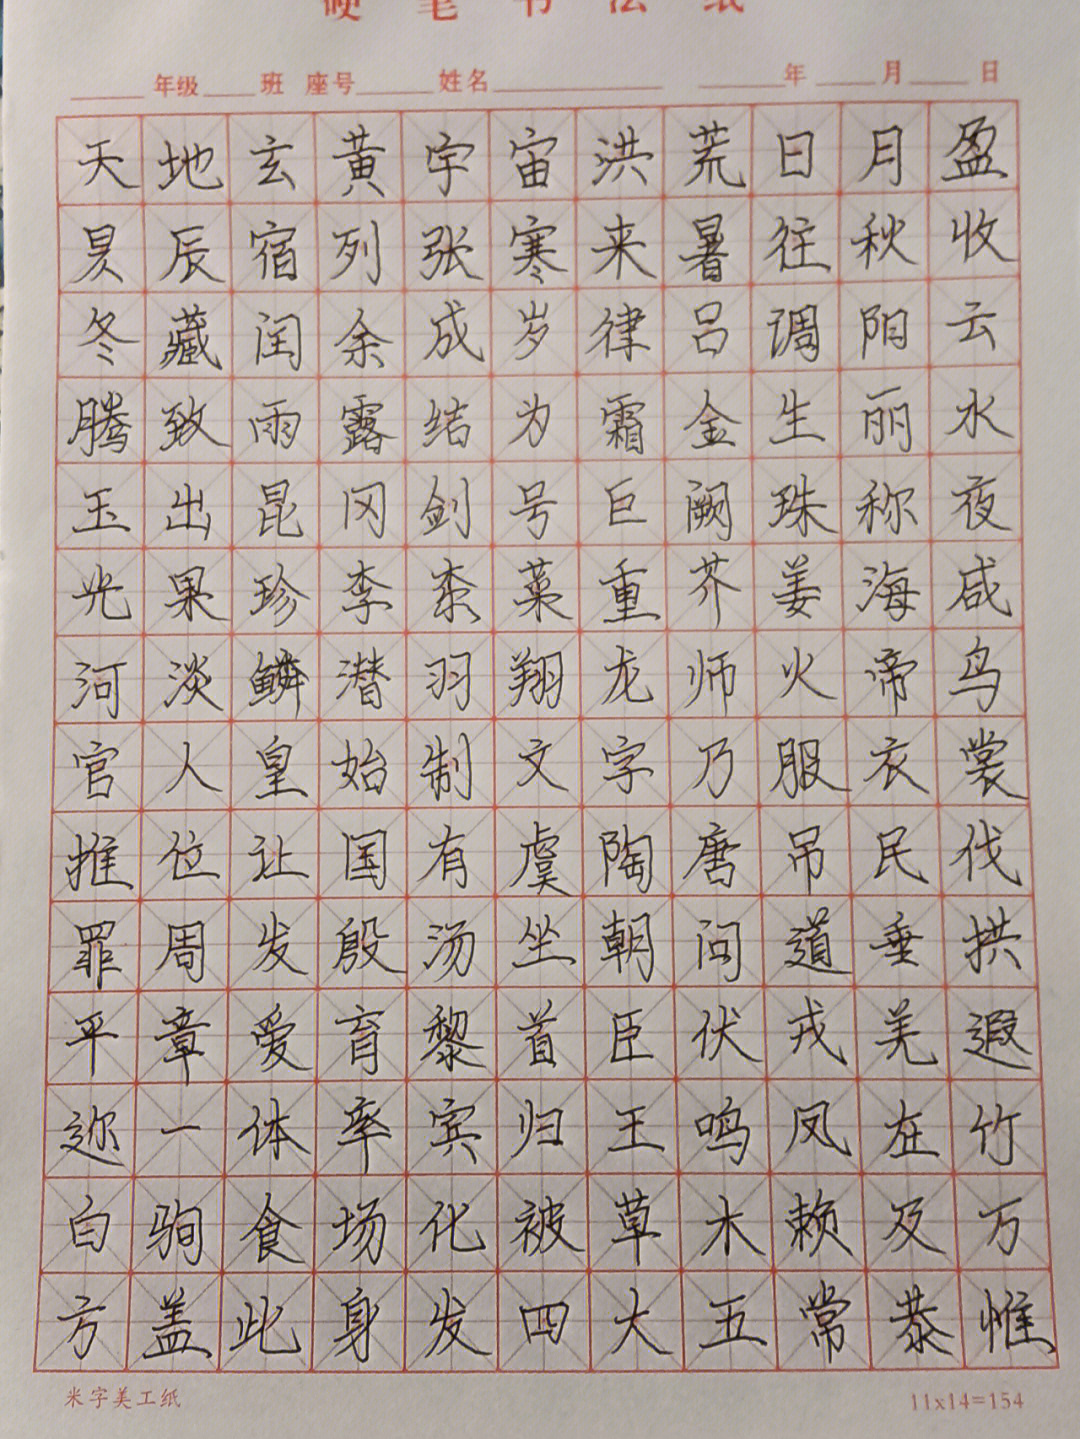 硬笔书法纸
年级 班 座号 姓名 年 月 日
天地玄黄宇宙洪荒日月盈
昃辰宿列张寒来暑往秋收
冬藏闰余成岁律吕调阳云
腾致雨露结为霜金生丽水
玉出昆冈剑号巨阙珠称夜
光果珍李柰菜重芥姜海咸
河淡鳞潜羽翔龙师火帝鸟
官人皇始制文字乃服衣裳
推位让国有虞陶唐吊民伐
罪周发殷汤坐朝问道垂拱
平章爱育黎首臣伏戎羌遐
迩一体率宾归王鸣凤在竹
白驹食场化被草木赖及万
方盖此身发四大五常恭惟
米字美工纸 11x14=154